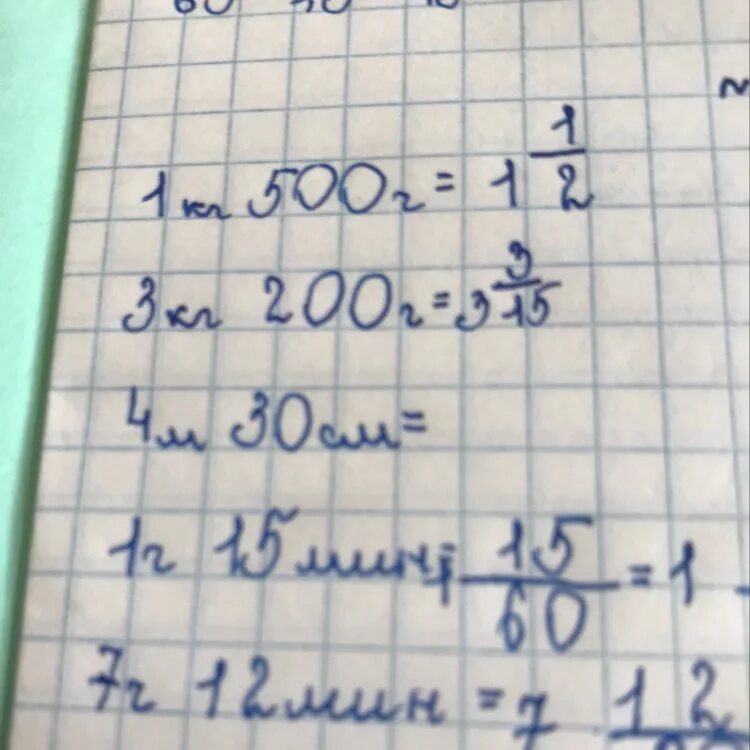 1 кг 500 г = 1 1/2
3 кг 200 г = 3 3/15
4 м 30 см =
1 ч 15 мин = 1 15/60 = 1
7 ч 12 мин = 7 12